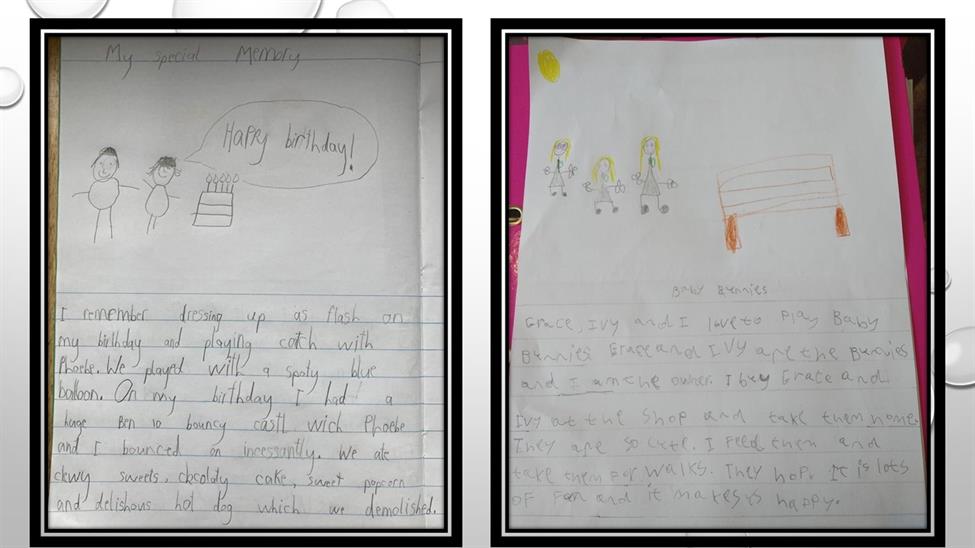 My special Memory
Happy birthday!
I remember dressing up as flash on
my birthday and playing catch with
Phoebe. We played with a spoty blue
balloon. On my birthday I had a
huge Ben 10 bouncy castl wich Phoebe
and I bounced on incessantly. We ate
chwy sweets, chcoldty cake, sweet popcorn
and delishous hot dog which we demolished.
Baby Bunnies
Grace, Ivy and I love to Play Baby
Bunnies. Grace and Ivy are the Bunnies
and I am the owner. I buy Grace and
Ivy at the Shop and take them home.
They are so cute. I feed them and
take them for walks. They hop. It is lots
of fun and it makes us happy.